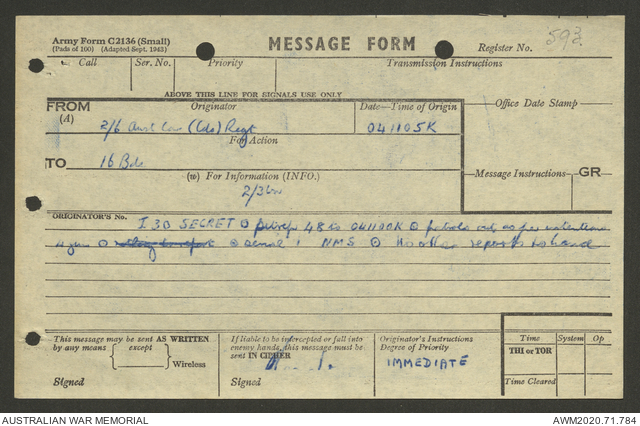 Army Form C2136 (Small)
(Pads of 100) (Adapted Sept. 1943)
MESSAGE FORM
Register No. 593
Call Ser. No. Priority Transmission Instructions
ABOVE THIS LINE FOR SIGNALS USE ONLY
FROM Originator Date-Time of Origin Office Date Stamp
(A) 2/6 Aust Cav (Cdo) Regt 041105K
For Action
TO 16 Bde
(W) For Information (INFO.) Message Instructions GR
2/3
ORIGINATOR'S No. I 30 SECRET ⊙ 48 to 041100K ⊙ patrols out as per intentions
⊙ serial 1 NMS ⊙ No other reports to hand
This message may be sent AS WRITTEN
by any means except
Wireless
Signed
If liable to be intercepted or fall into
enemy hands, this message must be
sent IN CIPHER
Signed
Originator's Instructions
Degree of Priority
IMMEDIATE
Time System Op
THI or TOR
Time Cleared
AUSTRALIAN WAR MEMORIAL AWM2020.71.784